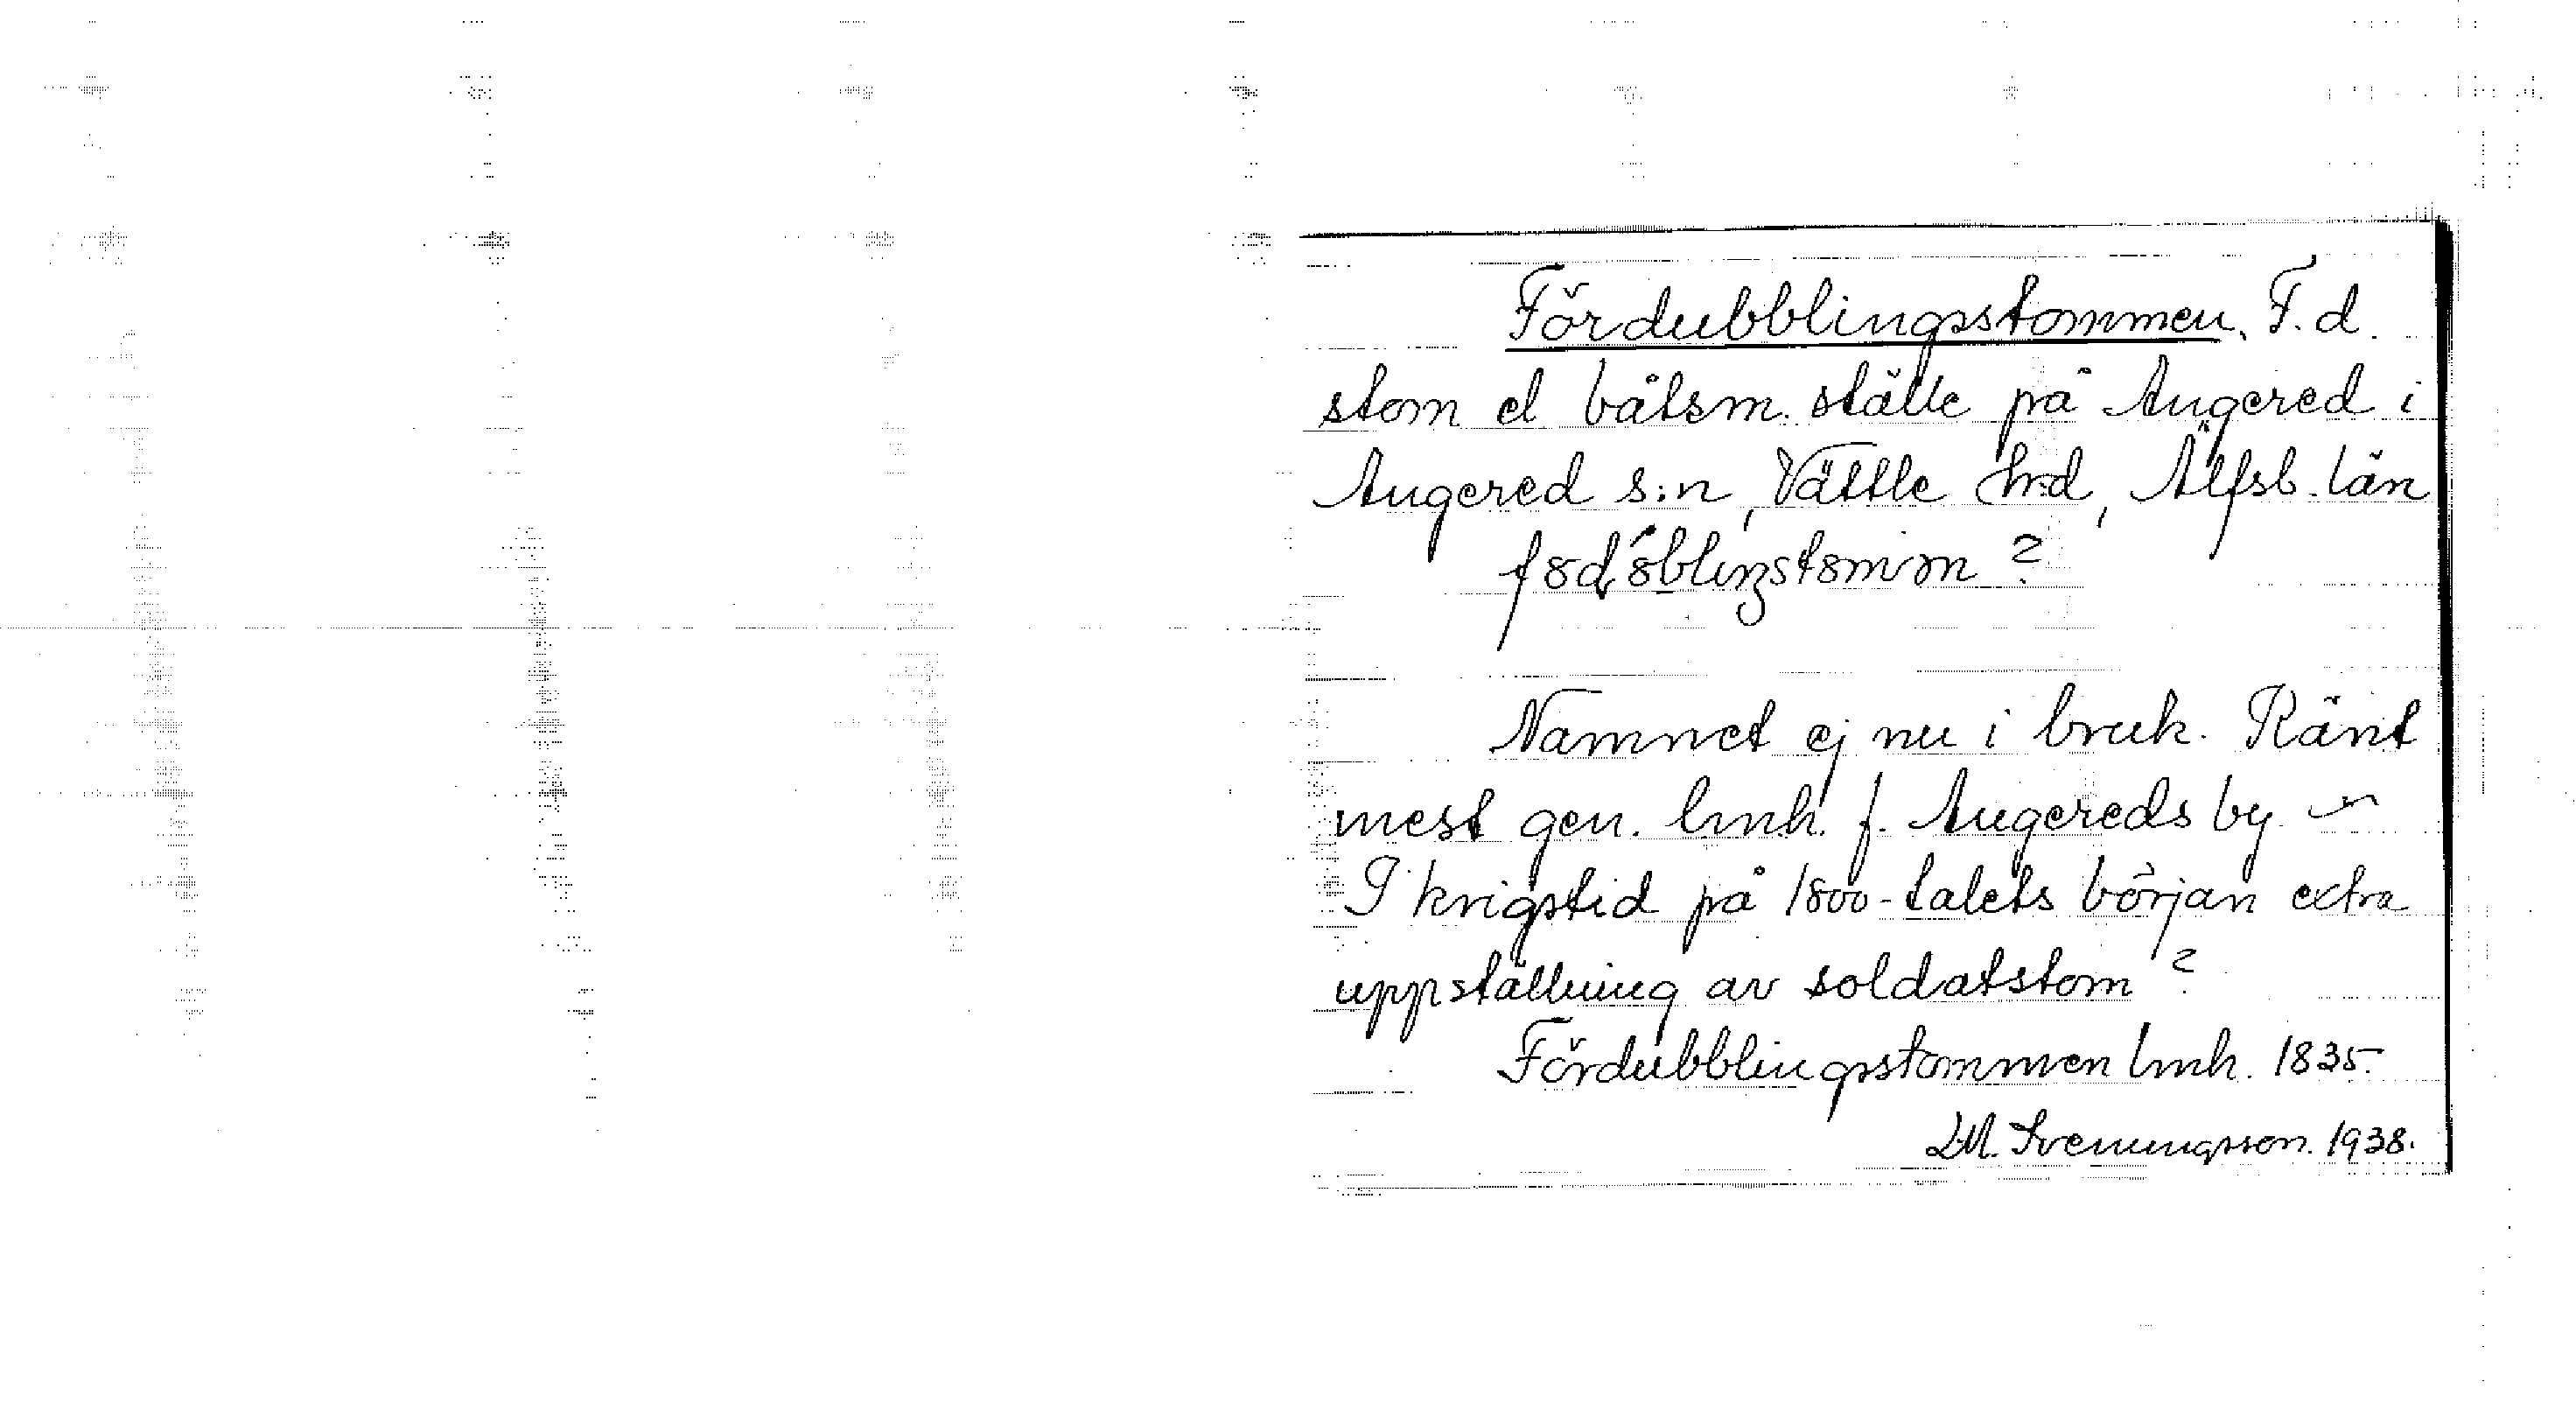 Fördubblingsstommen. F. d.
stom el båtsm. ställe på Angered i
Angered s:n, Vättle hrd, Älfsb. län
födöblingstomm ?
Namnet ej nu i bruk. Känt
mest gen. lmh. f. Angereds by.
I krigstid på 1800-talets början extra
uppställning av soldatstom ?
Fördubblingsstommen lmh. 1835.
Sveningsson. 1938.